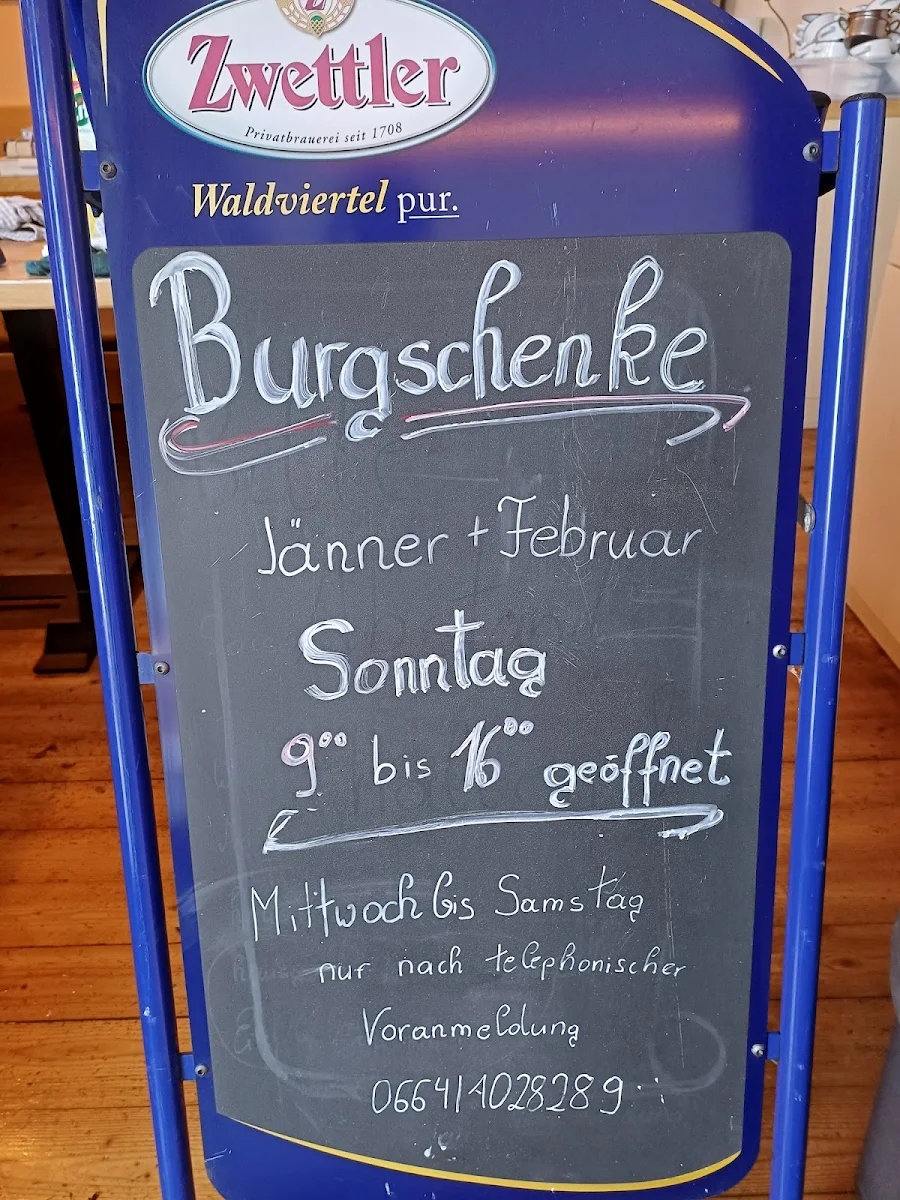 Zwettler
Privatbrauerei seit 1708
Waldviertel pur.
Burgschenke
Jänner + Februar
Sonntag
9⁰⁰ bis 16⁰⁰ geöffnet
Mittwoch bis Samstag
nur nach telephonischer
Voranmeldung
0664/4028289